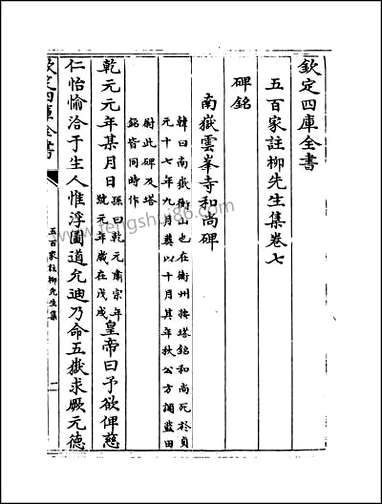 欽定四庫全書
五百家註柳先生集卷七
碑銘
南嶽雲峯寺和尚碑
韓曰南嶽衡山也在衡州按塔銘和尚死於貞
元十七年九月葬以十月其年秋公方調藍田
尉此碑及塔
銘皆同時作
乾元元年某月日孫曰乾元肅宗年
號元年歳在戊戌皇帝曰予欲俾慈
仁怡愉洽于生人惟浮圖道允迪乃命五嶽求厥元德
欽定四庫全書
五百家註柳先生集
一
www.fengshu86.com